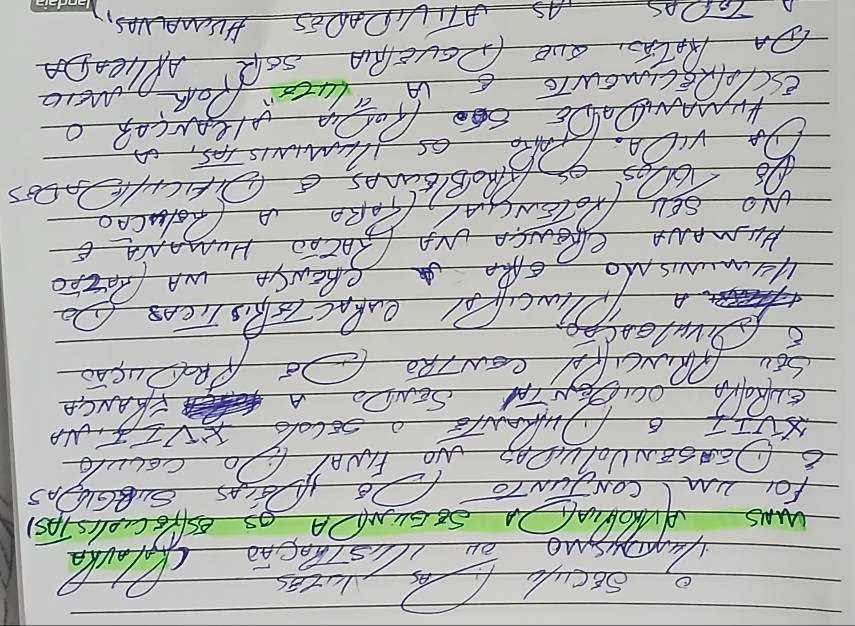 O SÉCULO DAS LUZES
ILUMINISMO OU ILUSTRAÇÃO (PALAVRA
MAIS APROPRIADA SEGUNDO OS ESPECIALISTAS)
FOI UM CONJUNTO DE IDEIAS SURGIDAS
E DESENVOLVIDAS NO FINAL DO
XVII E DURANTE O SÉCULO XVIII, NA
EUROPA OCIDENTAL SENDO A FRANÇA
SEU PRINCIPAL CENTRO DE PRODUÇÃO
E DIVULGAÇÃO.
A PRINCIPAL CARACTERÍSTICAS DO
ILUMINISMO ERA A CRENÇA NA RAZÃO
HUMANA CRENÇA NA RAZÃO HUMANA E
NO SEU POTENCIAL PARA A
DE TODOS OS PROBLEMAS E DIFICULDADES
DA VIDA. PARA OS ILUMINISTAS, A
HUMANIDADE PODIA ALCANÇAR O
ESCLARECIMENTO E A "LUZES" POR MEIO
DA RAZÃO, QUE DEVERIA SER APLICADA
A TODAS AS ATIVIDADES HUMANAS,